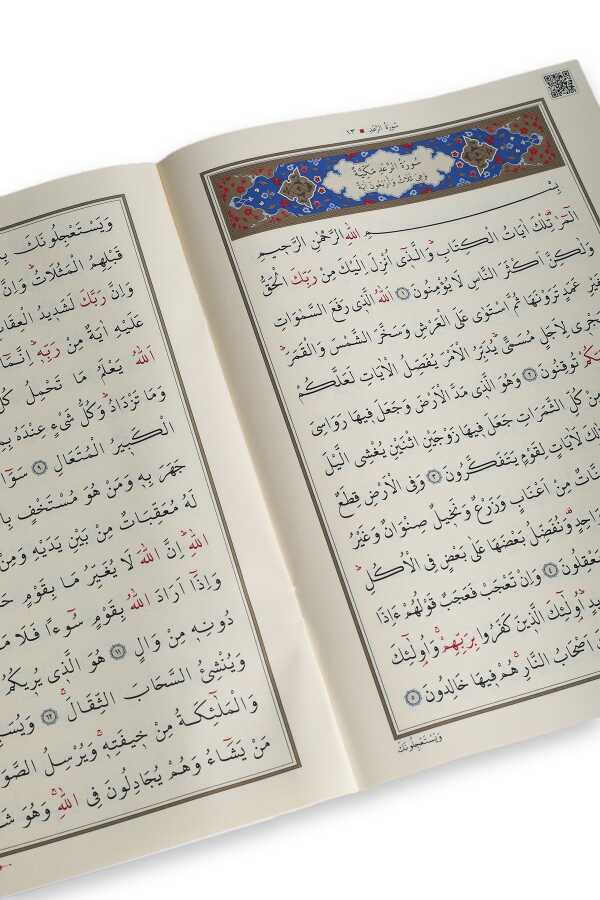 سُورَةُ الرَّعْدِ ١٣
سُورَةُ الرَّعْدِ مَكِّيَّةٌ
وَهِيَ ثَلَاثٌ وَأَرْبَعُونَ آيَةً
بِسْمِ اللهِ الرَّحْمٰنِ الرَّحِيمِ
الٓمٓرٰ تِلْكَ اٰيَاتُ الْكِتَابِ وَالَّذٓى اُنْزِلَ اِلَيْكَ مِنْ رَبِّكَ الْحَقُّ
وَلٰكِنَّ اَكْثَرَ النَّاسِ لَا يُؤْمِنُونَ ١ اَللهُ الَّذٖى رَفَعَ السَّمٰوَاتِ
بِغَيْرِ عَمَدٍ تَرَوْنَهَا ثُمَّ اسْتَوٰى عَلَى الْعَرْشِ وَسَخَّرَ الشَّمْسَ وَالْقَمَرَ
يَجْرٖى لِاَجَلٍ مُسَمًّى يُدَبِّرُ الْاَمْرَ يُفَصِّلُ الْاٰيَاتِ لَعَلَّكُمْ
رَبِّكُمْ تُوقِنُونَ ٢ وَهُوَ الَّذٖى مَدَّ الْاَرْضَ وَجَعَلَ فٖيهَا رَوَاسِىَ
مِنْ كُلِّ الثَّمَرَاتِ جَعَلَ فٖيهَا زَوْجَيْنِ اثْنَيْنِ يُغْشِى الَّيْلَ
ذٰلِكَ لَاٰيَاتٍ لِقَوْمٍ يَتَفَكَّرُونَ ٣ وَفِى الْاَرْضِ قِطَعٌ
مِنْ اَعْنَابٍ وَزَرْعٌ وَنَخٖيلٌ صِنْوَانٌ وَغَيْرُ
وَاحِدٍ وَنُفَضِّلُ بَعْضَهَا عَلٰى بَعْضٍ فِى الْاُكُلِ
يَعْقِلُونَ ٤ وَاِنْ تَعْجَبْ فَعَجَبٌ قَوْلُهُمْ ءَاِذَا
اُولٰٓئِكَ الَّذٖينَ كَفَرُوا بِرَبِّهِمْ وَاُولٰٓئِكَ
اَصْحَابُ النَّارِ هُمْ فٖيهَا خَالِدُونَ ٥
وَيَسْتَعْجِلُونَكَ
وَيَسْتَعْجِلُونَكَ
قَبْلِهِمُ الْمَثُلَاتُ وَاِنَّ
وَاِنَّ رَبَّكَ لَشَدٖيدُ الْعِقَابِ
عَلَيْهِ اٰيَةٌ مِنْ رَبِّهٖ اِنَّمَٓا
اَللهُ يَعْلَمُ مَا تَحْمِلُ كُلُّ
وَمَا تَزْدَادُ وَكُلُّ شَىْءٍ عِنْدَهُ
الْكَبٖيرُ الْمُتَعَالِ ٩ سَوَٓاءٌ
جَهَرَ بِهٖ وَمَنْ هُوَ مُسْتَخْفٍ
لَهُ مُعَقِّبَاتٌ مِنْ بَيْنِ يَدَيْهِ وَمِنْ
اللهِ اِنَّ اللهَ لَا يُغَيِّرُ مَا بِقَوْمٍ
وَاِذَٓا اَرَادَ اللهُ بِقَوْمٍ سُٓوءًا فَلَا
دُونِهٖ مِنْ وَالٍ ١١ هُوَ الَّذٖى يُرٖيكُمُ
وَيُنْشِئُ السَّحَابَ الثِّقَالَ ١٢
وَالْمَلٰٓئِكَةُ مِنْ خٖيفَتِهٖ وَيُرْسِلُ
مَنْ يَشَٓاءُ وَهُمْ يُجَادِلُونَ فِى اللهِ وَهُوَ